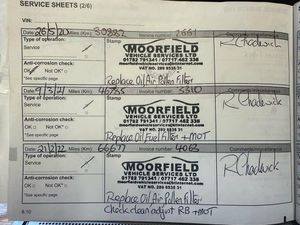 SERVICE SHEETS (2/6)
VIN:
Date: 26/5/20 Miles (Km): 30832 Invoice number: 2661
Type of operation: Stamp
Service
MOORFIELD
VEHICLE SERVICES LTD
01782 791341 / 07717 462 336
moorfieldvehicleservices@btinternet.com
VAT NO. 289 8535 31
R Chadwick
Anti-corrosion check:
OK Not OK* □
*See specific page
Replace Oil Air Pollen Filter
Date: 9/3/21 Miles (Km): 46735 Invoice number: 3310
Type of operation: Stamp
Service
MOORFIELD
VEHICLE SERVICES LTD
01782 791341 / 07717 462 336
moorfieldvehicleservices@btinternet.com
VAT NO. 289 8535 31
R Chadwick
Anti-corrosion check:
OK □ Not OK* □
*See specific page
Replace Oil Air Pollen Filter + MOT
Date: 21/2/22 Miles (Km): 66677 Invoice number: 4063
Type of operation: Stamp
Service
MOORFIELD
VEHICLE SERVICES LTD
01782 791341 / 07717 462 336
moorfieldvehicleservices@btinternet.com
VAT NO. 289 8535 31
R Chadwick
Anti-corrosion check:
OK □ Not OK* □
*See specific page
Replace Oil Air Pollen Filter
6.10 Check clean adjust RB + MOT